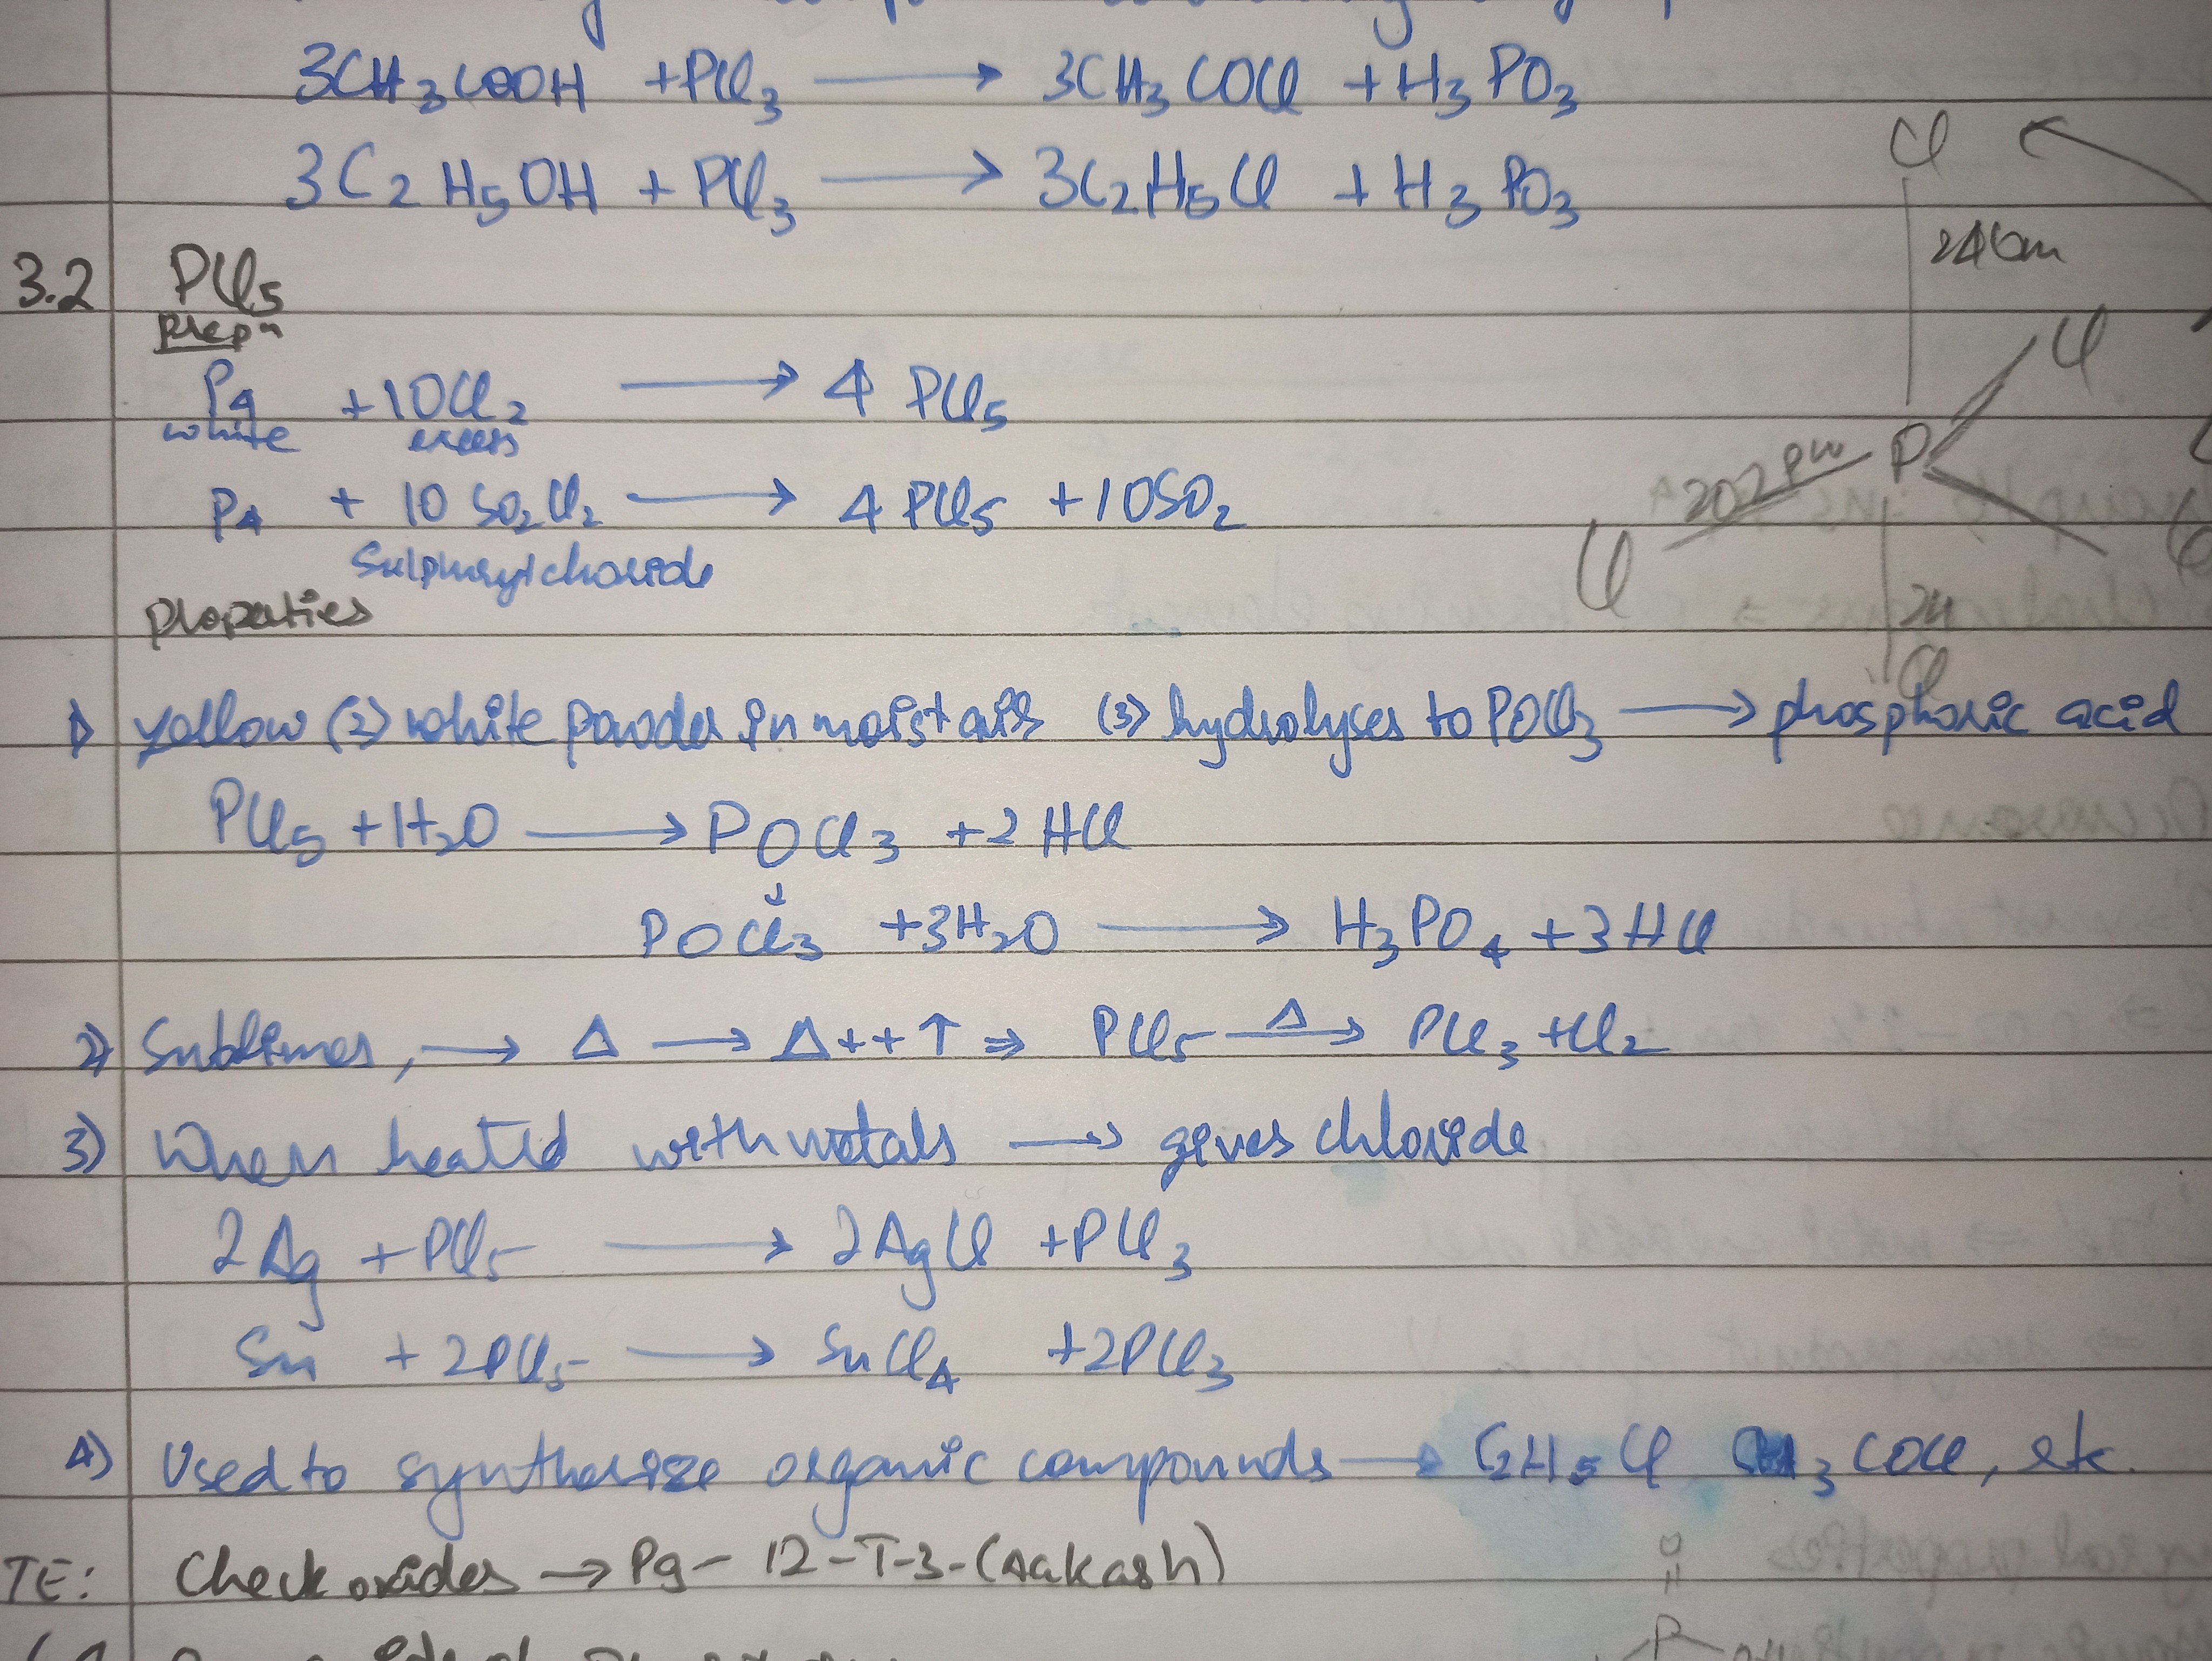 3CH₃COOH + PCl₃ ⟶ 3CH₃COCl + H₃PO₃
3C₂H₅OH + PCl₃ ⟶ 3C₂H₅Cl + H₃PO₃
Cl
240pm
3.2 PCl₅
Prepn
P₄ + 10Cl₂ ⟶ 4 PCl₅
white excess
Cl
P
202pm
Cl
P₄ + 10 SO₂Cl₂ ⟶ 4 PCl₅ + 10SO₂
Sulphurylchoride
24
Cl
Properties
1) yellow (2) white powder in moist air (3) hydrolyses to POCl₃ ⟶ phosphoric acid
PCl₅ + H₂O ⟶ POCl₃ + 2 HCl
↓
POCl₃ + 3H₂O ⟶ H₃PO₄ + 3 HCl
2) Sublimes, → Δ → Δ++↑ ⇒ PCl₅ –Δ→ PCl₃ + Cl₂
3) When heated with metals → gives chloride
2Ag + PCl₅ ⟶ 2AgCl + PCl₃
Sn + 2PCl₅ ⟶ SnCl₄ + 2PCl₃
4) Used to synthesize organic compounds → C₂H₅Cl CH₃COCl, etc.
TE: Check oxides → Pg- 12-T-3-(Aakash)
O
P